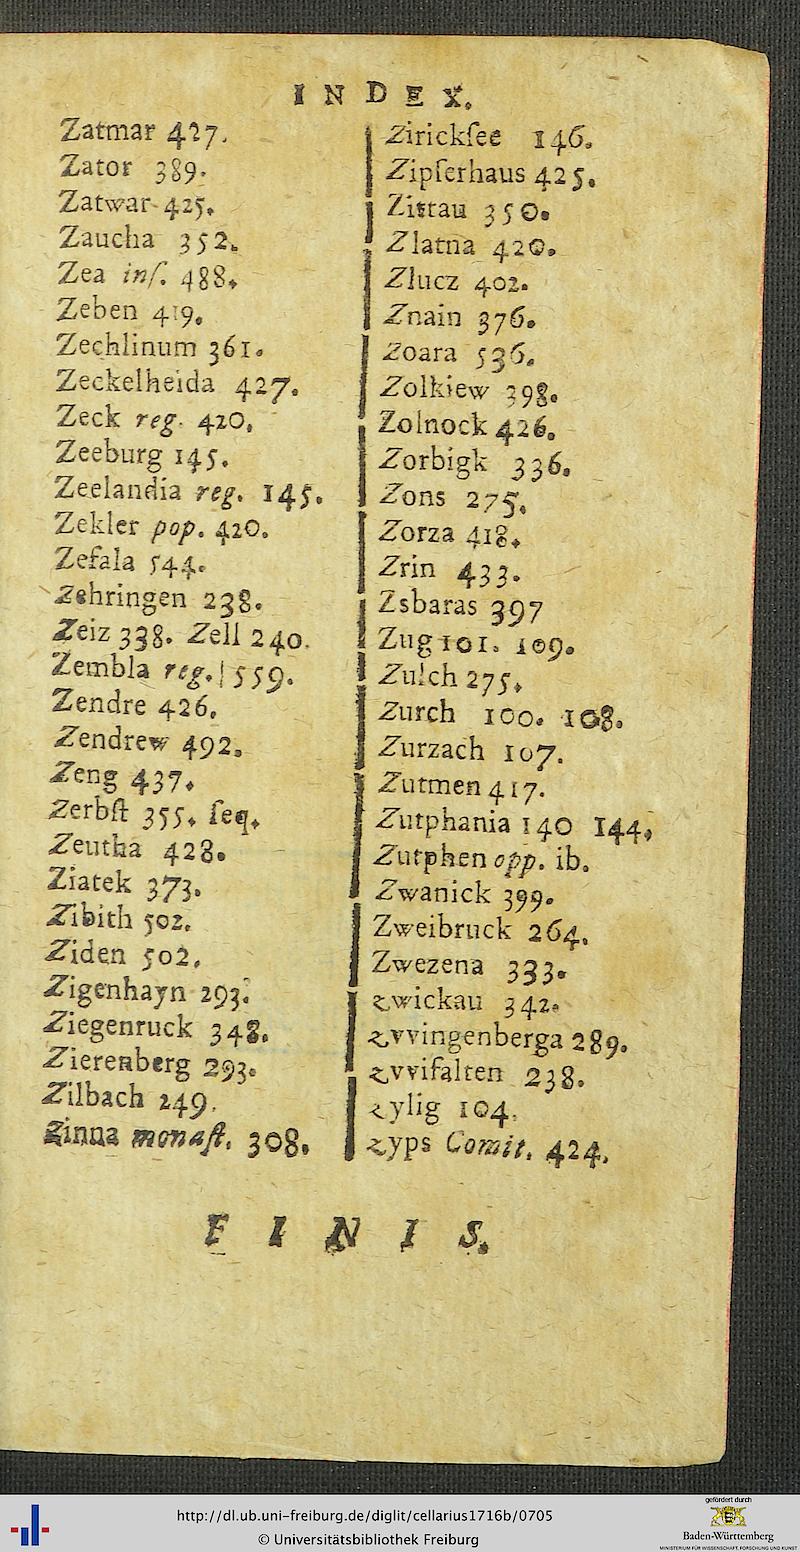 INDEX.
Zatmar 427.
Zator 389.
Zatwar 425.
Zaucha 352.
Zea inſ. 488.
Zeben 419.
Zechlinum 361.
Zeckelheida 427.
Zeck reg. 420.
Zeeburg 145.
Zeelandia reg. 145.
Zekler pop. 420.
Zefala 544.
Zehringen 238.
Zeiz 338. Zell 240.
Zembla reg. 559.
Zendre 426.
Zendrew 492.
Zeng 437.
Zerbſt 355. ſeq.
Zeutha 428.
Ziatek 373.
Zibith 502.
Ziden 502.
Zigenhayn 293.
Ziegenruck 348.
Zierenberg 293.
Zilbach 249.
Zinna monaſt. 308.
Zirickſee 146.
Zipſerhaus 425.
Zittau 350.
Zlatna 420.
Zlucz 402.
Znain 376.
Zoara 536.
Zolkiew 398.
Zolnock 426.
Zorbigk 336.
Zons 275.
Zorza 418.
Zrin 433.
Zsbaras 397
Zug 101. 109.
Zulch 275.
Zurch 100. 108.
Zurzach 107.
Zutmen 417.
Zutphania 140 144.
Zutphen opp. ib.
Zwanick 399.
Zweibruck 264.
Zwezena 333.
Zwickau 342.
Zvvingenberga 289.
Zvvifalten 238.
Zylig 104.
Zyps Comit. 424.
FINIS.
http://dl.ub.uni-freiburg.de/diglit/cellarius1716b/0705
© Universitätsbibliothek Freiburg
gefördert durch
Baden-Württemberg
MINISTERIUM FÜR WISSENSCHAFT, FORSCHUNG UND KUNST